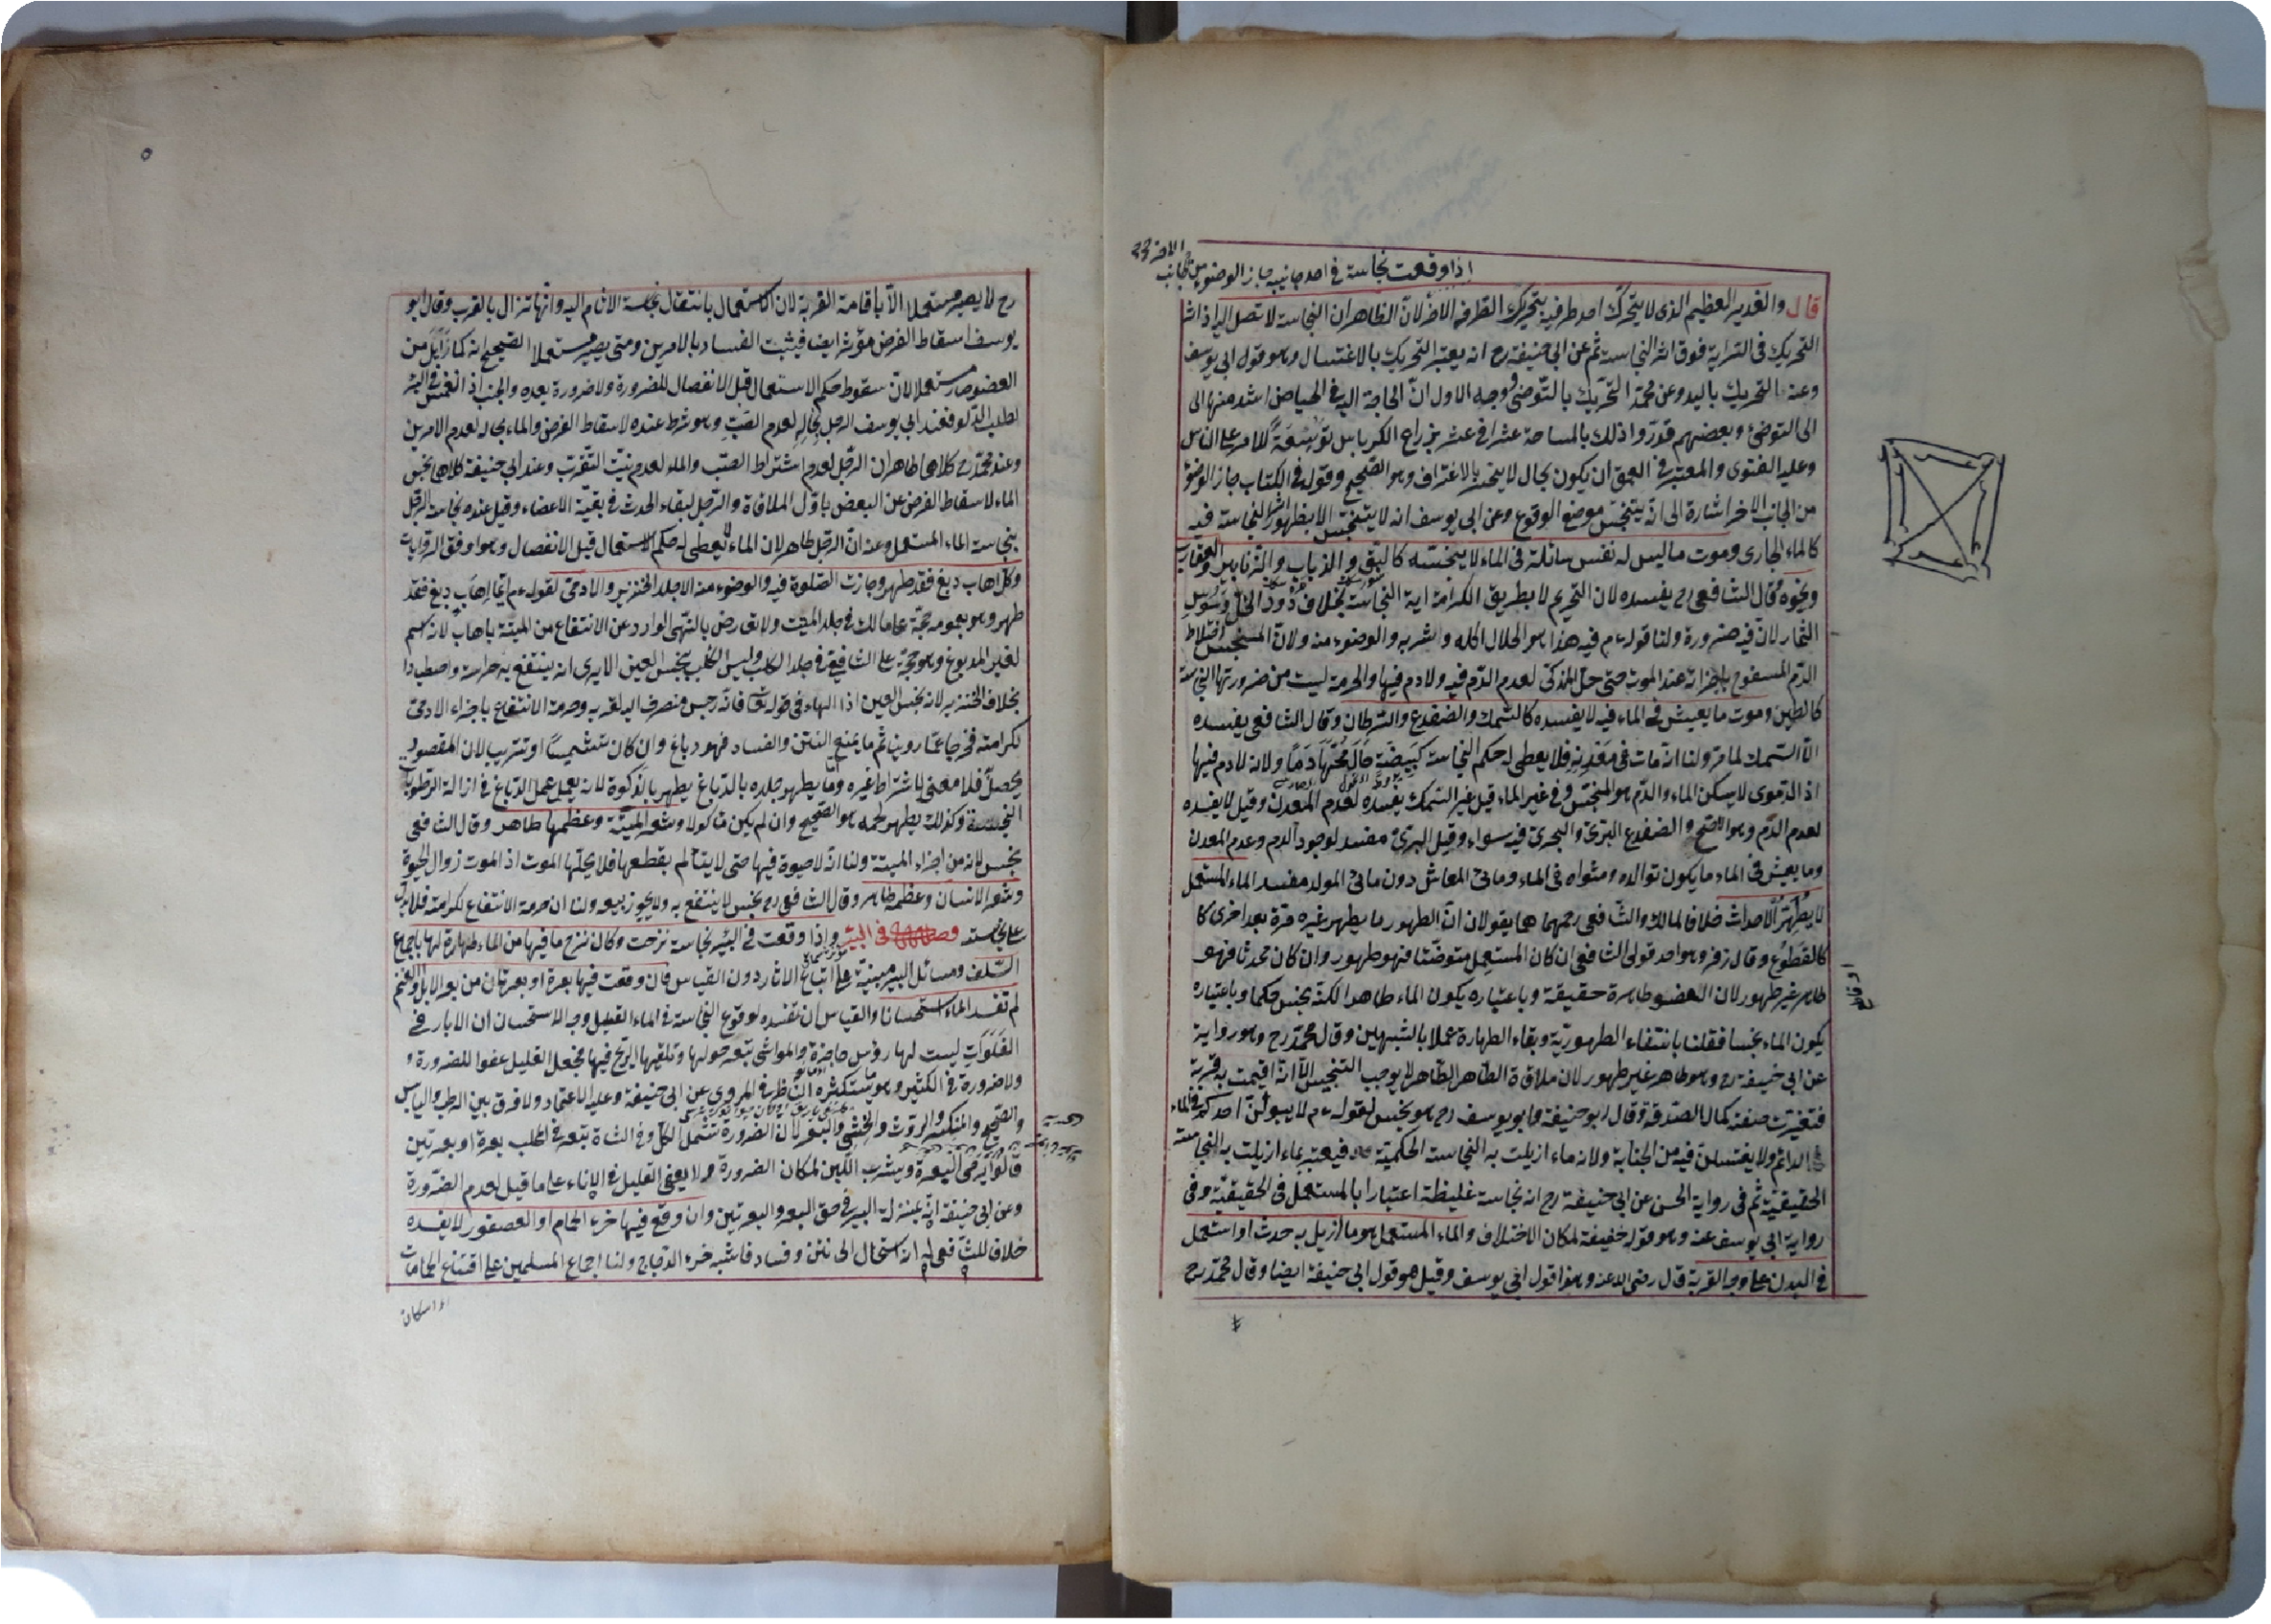 اذا وقعت نجاسة فى احد جانبيه جاز الوضوء من الجانب
الاخر
قال والغدير العظيم الذى لا يتحرك احد طرفيه بتحريك الطرف الاخر لان الظاهر ان النجاسة لا تصل اليه اذ اثر
التحريك فى السراية فوق اثر النجاسة ثم عن ابى حنيفة رح انه يعتبر التحريك بالاغتسال وهو قول ابى يوسف
وعنه بالتحريك باليد وعن محمد التحريك بالتوضى ووجه الاول ان الحاجة اليه فى الحياض اشد منها الى
الى التوضئ وبعضهم قدروا ذلك بالمساحة عشرا فى عشر بزراع الكرباس توسعة للامر على الناس
وعليه الفتوى والمعتبر فى العمق ان يكون بحال لا ينحسر بالاغتراف وهو الصحيح وقوله فى الكتاب جاز الوضوء
من الجانب الاخر اشارة الى انه يتنجس موضع الوقوع وعن ابى يوسف انه لا يتنجس الا بظهور اثر النجاسة فيه
كالماء الجارى وموت ما ليس له نفس سائلة فى الماء لا ينجسه كالبق والذباب والزنابير والعقارب
ونحوه وقال الشافعى رح يفسده لان التحريم لا بطريق الكرامة اية النجاسة بخلاف دود الخل وسوس
الثمار لان فيه ضرورة ولنا قوله ءم فيه هذا هو الحلال اكله وشربه والوضوء منه ولان المنجس اختلاط
الدم المسفوح باجزائه عند الموت حتى حل المذكى لعدم الدم فيه ولا دم فيها والحرمة ليست من ضرورتها النجاسة
كالطين وموت ما يعيش فى الماء فيه لا يفسده كالسمك والضفدع والسرطان وقال الشافعى يفسده
الا السمك لما مر ولنا انه مات فى معدنه فلا يعطى له حكم النجاسة كبيضة حال محها دما ولانه لا دم فيها
اذ الدموى لا يسكن الماء والدم هو المنجس وفى غير الماء قيل غير السمك يفسده لعدم المعدن وقيل لا يفسده
لعدم الدم وهو الاصح والضفدع البرى والبحرى فيه سواء وقيل البرى مفسد لوجود الدم وعدم المعدن
وما يعيش فى الماء ما يكون توالده ومثواه فى الماء ومائى المعاش دون مائى المولد مفسد الماء المستعمل
لا يطهر الاحداث خلافا لمالك والشافعى رحمهما هما يقولان ان الطهور ما يطهر غيره مرة بعد اخرى كا
كالقطوع وقال زفر وهو احد قولى الشافعى ان كان المستعمل متوضئا فهو طهور وان كان محدثا فهو
طاهر غير طهور لان العضو طاهرة حقيقة وباعتباره يكون الماء طاهرا لكنه نجس حكما وباعتباره
يكون الماء نجسا فقلنا بانتفاء الطهورية وبقاء الطهارة عملا بالشبهين وقال محمد رح وهو رواية
عن ابى حنيفة رح وهو طاهر غير طهور لان ملاقاة الطاهر الطاهر لا يوجب التنجيس الا انه اقيمت به قربة
فتغيرت صفته كمال الصدقة وقال ابو حنيفة وابو يوسف رح هو نجس لقوله ءم لا يبولن احدكم فى الماء
الدائم ولا يغتسلن فيه من الجنابة ولانه ماء ازيلت به النجاسة الحكمية فيعتبر بماء ازيلت به النجاسة
الحقيقية ثم فى رواية الحسن عن ابى حنيفة رح انه نجاسة غليظة اعتبارا بالمستعمل فى الحقيقية وفى
رواية ابى يوسف عنه وهو قوله خفيفة لمكان الاختلاف والماء المستعمل هو ما ازيل به حدث او استعمل
فى البدن على وجه القربة قال رضى الله عنه وهذا قول ابى يوسف وقيل هو قول ابى حنيفة ايضا وقال محمد رح
٥
رح لا يصير مستعملا الا باقامة القربة لان الاستعمال بانتقال نجاسة الاثام اليه وانها تزال بالقرب وقال ابو
يوسف اسقاط الفرض مؤثر ايضا فيثبت الفساد بالامرين ومتى يصير مستعملا الصحيح انه كما زايل من
العضو صار مستعملا لان سقوط حكم الاستعمال قبل الانفصال للضرورة ولا ضرورة بعده والجنب اذا انغمس فى البئر
لطلب الدلو فعند ابى يوسف الرجل بحاله لعدم الصب وهو شرط عنده لاسقاط الفرض والماء بحاله لعدم الامرين
وعند محمد رح كلاهما طاهران الرجل لعدم اشتراط الصب والماء لعدم نية التقرب وعند ابى حنيفة كلاهما نجس
الماء لاسقاط الفرض عن البعض باول الملاقاة والرجل لبقاء الحدث فى بقية الاعضاء وقيل عنده نجاسة الرجل
بنجاسة الماء المستعمل وعنه ان الرجل طاهر لان الماء لا يعطى له حكم الاستعمال قبل الانفصال وهو اوفق الروايات
وكل اهاب دبغ فقد طهر وجازت الصلوة فيه والوضوء منه الا جلد الخنزير والادمى لقوله ءم ايما اهاب دبغ فقد
طهر وهو بعمومه حجة على مالك فى جلد الميت ولا يعارض بالنهى الوارد عن الانتفاع من الميتة باهاب لانه اسم
لغير المدبوغ وهو حجة على الشافعى فى جلد الكلب وليس الكلب بنجس العين الا يرى انه ينتفع به حراسة واصطيادا
بخلاف الخنزير لانه نجس العين اذ الهاء فى قوله تعالى فانه رجس منصرف اليه لقربه وحرمة الانتفاع باجزاء الادمى
لكرامته فخرجا عما روينا ثم ما يمنع النتن والفساد فهو دباغ وان كان تشميسا او تتريبا لان المقصود
يحصل فلا معنى لاشتراط غيره وما يطهر جلده بالدباغ يطهر بالذكوة لانه يعمل عمل الدباغ فى ازالة الرطوبات
النجسة وكذلك يطهر لحمه هو الصحيح وان لم يكن ماكولا وشعر الميتة وعظمها طاهر وقال الشافعى
نجس لانه من اجزاء الميتة ولنا انه لا حيوة فيها حتى لا يتألم بقطعها فلا يحلها الموت اذ الموت زوال الحيوة
وشعر الانسان وعظمه طاهر وقال الشافعى رح نجس لا ينتفع به ولا يجوز بيعه ولنا ان حرمة الانتفاع لكرامته فلا يدل
على نجاسته فصل فى البئر واذا وقعت فى البئر نجاسة نزحت وكان نزح ما فيها من الماء طهارة لها باجماع
السلف ومسائل البير مبنية على اتباع الاثار دون القياس فان وقعت فيها بعرة او بعرتان من بعر الابل والغنم
لم تفسد الماء استحسانا والقياس ان تفسده لوقوع النجاسة فى الماء القليل وجه الاستحسان ان الابار فى
الفلوات ليست لها رؤس حاجزة والمواشى تبعر حولها وتلقيها الريح فيها فجعل القليل عفوا للضرورة و
ولا ضرورة فى الكثير وهو ما يستكثره الناظر فى المروى عن ابى حنيفة وعليه الاعتماد ولا فرق بين الرطب واليابس
والصحيح والمنكسر والروث والخثى والبعر لان الضرورة تشمل الكل وفى الشاة تبعر فى المحلب بعرة او بعرتين
قالوا يرمى البعرة ويشرب اللبن لمكان الضرورة ولا يعفى القليل فى الاناء على ما قيل لعدم الضرورة
وعن ابى حنيفة انه بمنزلة البير فى حق البعر والبعرتين وان وقع فيها خرء الحمام او العصفور لا يفسده
خلافا للشافعى له انه استحال الى نتن وفساد فاشبه خرء الدجاج ولنا اجماع المسلمين على اقتناع الحمامات